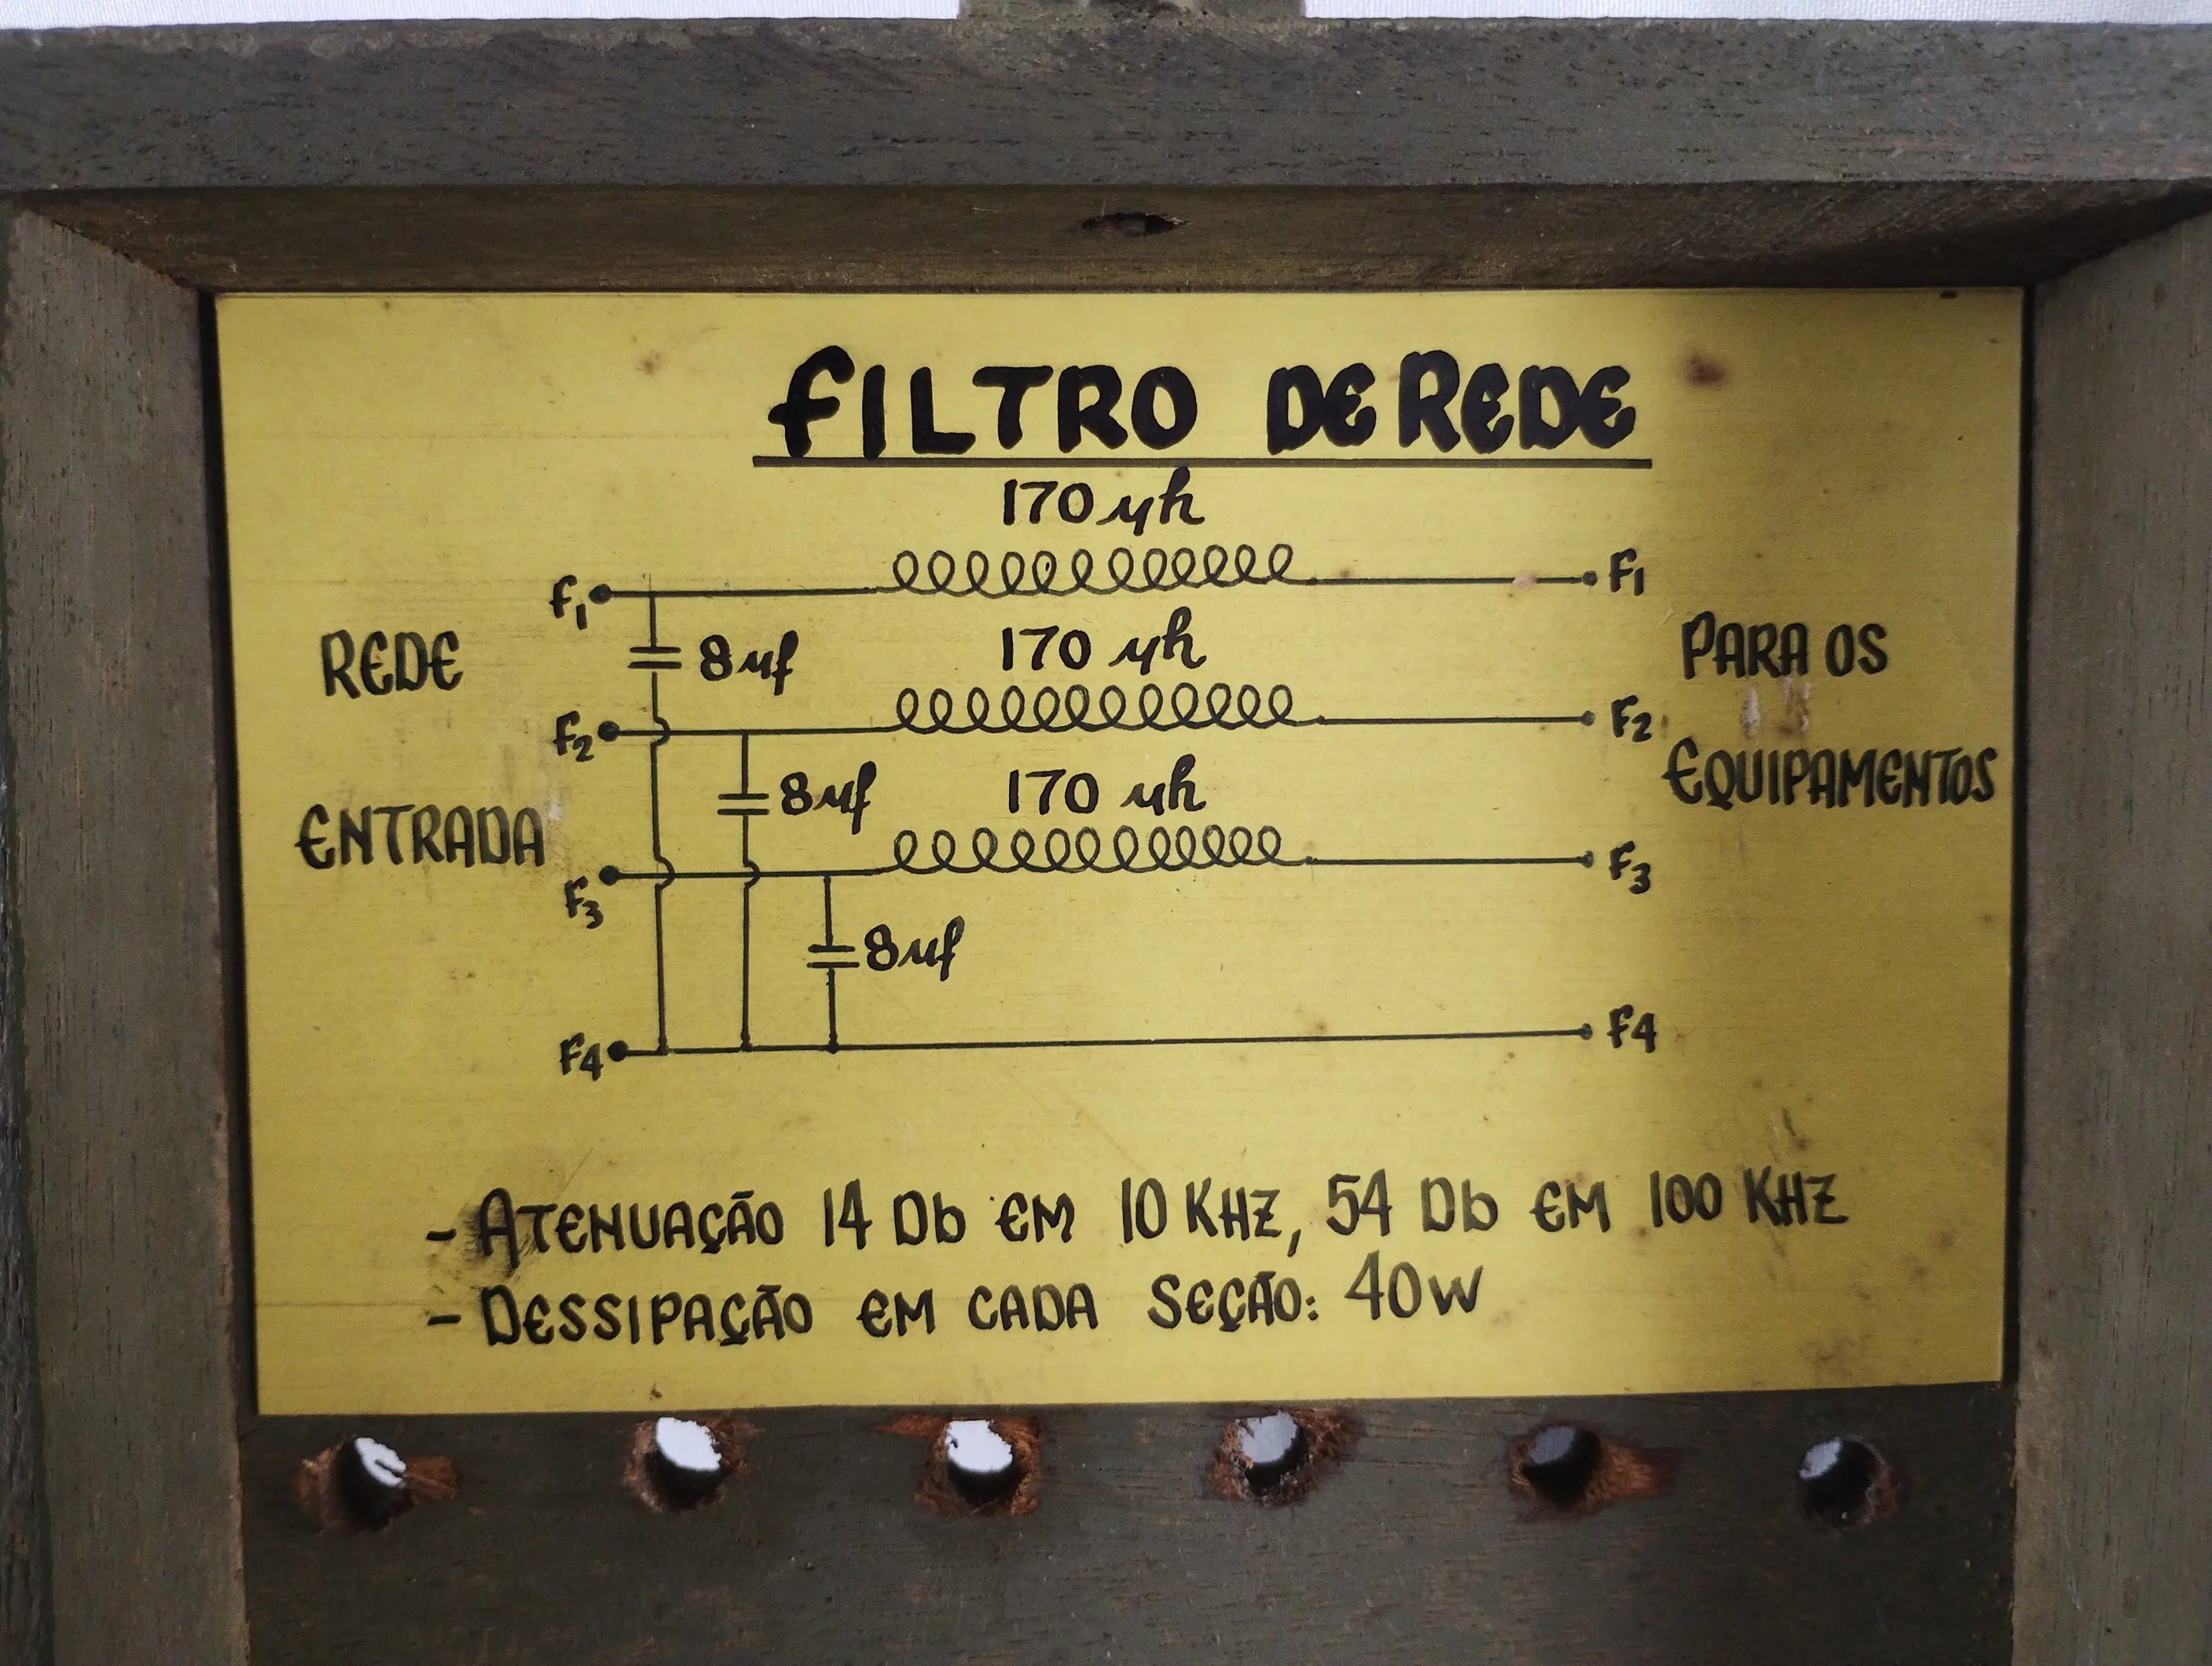 FILTRO DE REDE
170 μh
F1
F1
REDE
8 μf
170 μh
PARA OS
F2
F2
8 μf
170 μh
EQUIPAMENTOS
ENTRADA
F3
F3
8 μf
F4
F4
- ATENUAÇÃO 14 Db EM 10 KHZ, 54 Db EM 100 KHZ
- DESSIPAÇÃO EM CADA SEÇÃO: 40W